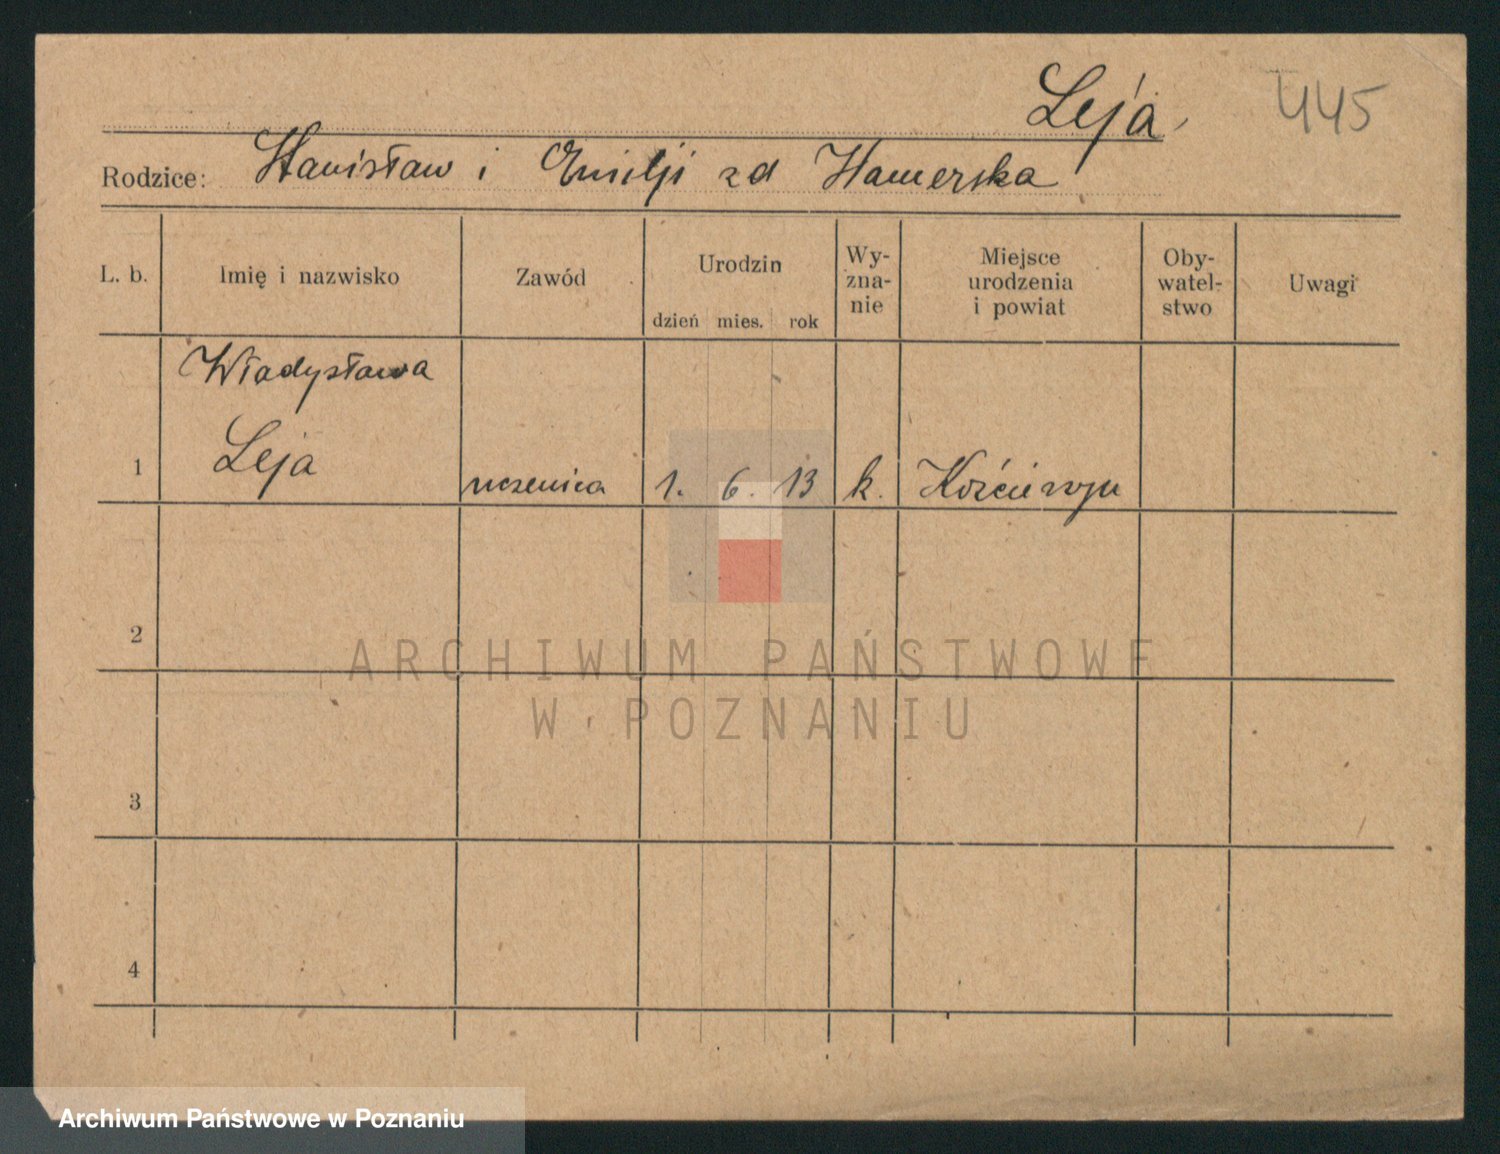 Leja 445
Rodzice: Stanisław i Emilji zd Hamerska
L. b. Imię i nazwisko Zawód Urodzin dzień mies. rok Wy-zna-nie Miejsce urodzenia i powiat Oby-watel-stwo Uwagi
Władysława
1 Leja uczenica 1. 6. 13 k.
2
3
4
ARCHIWUM PAŃSTWOWE
W POZNANIU
Archiwum Państwowe w Poznaniu